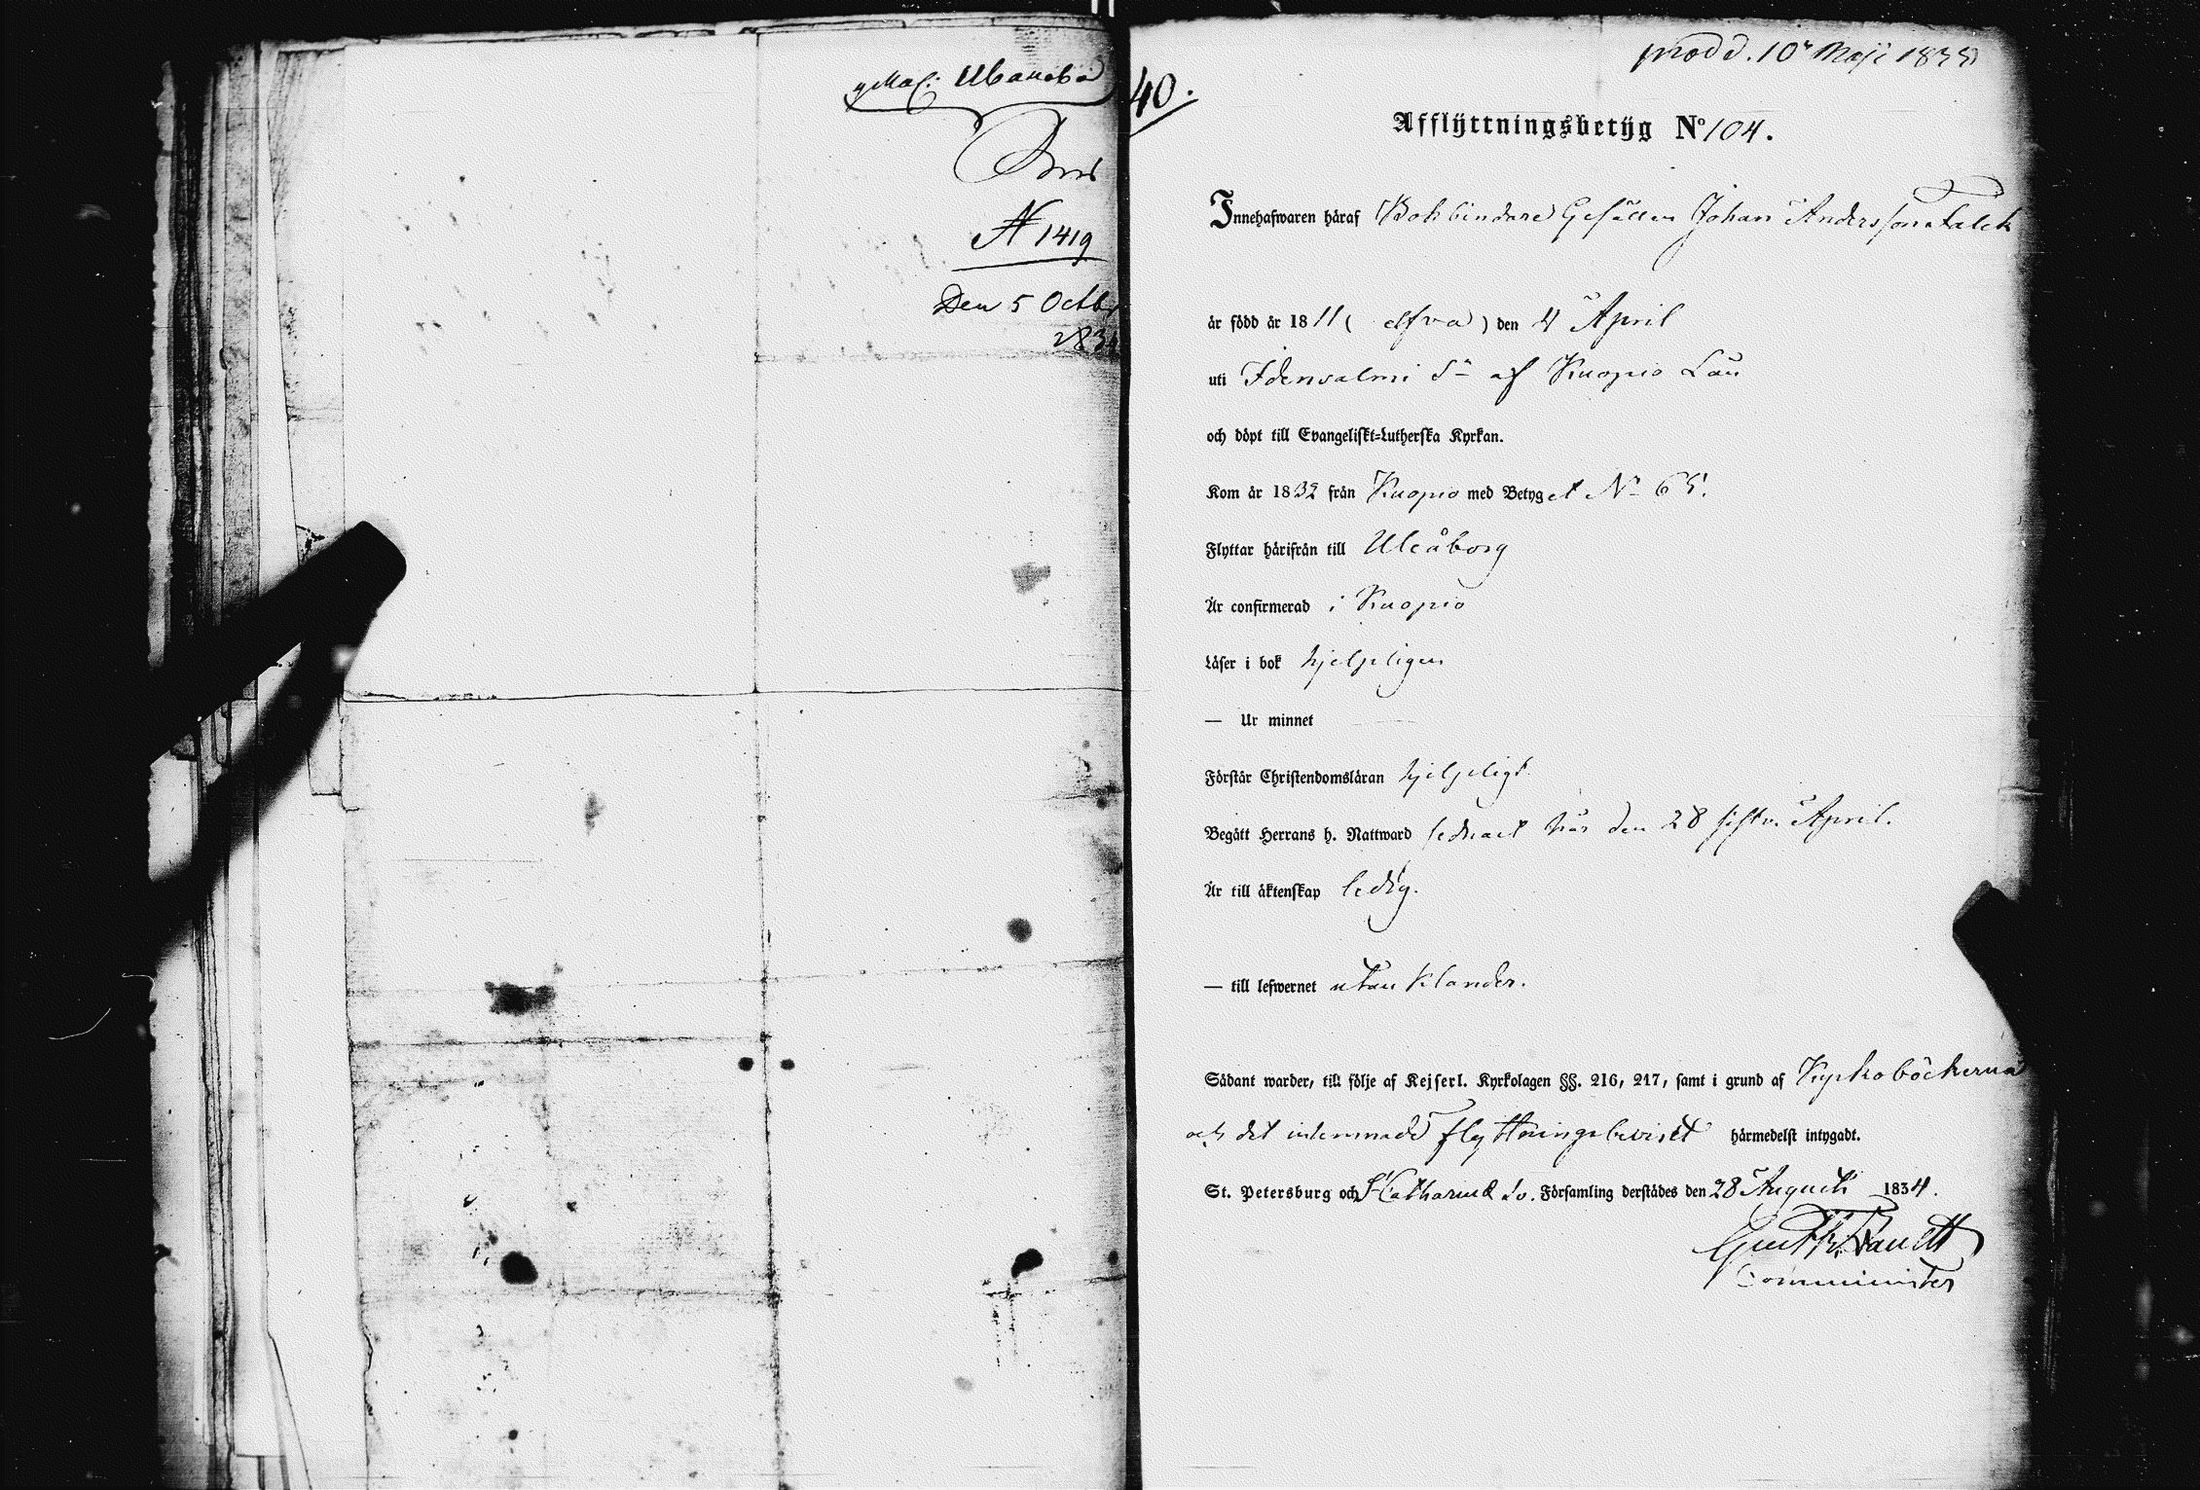 Иванова
N 1419
Den 5 Octbr
183
40.
prodd. 10 Maji 1835
Afflÿttningsbetÿg No 104.
Innehafwaren häraf Bokbindare Gesällen Johan Andersson Falck
är född år 1811 ( elfva ) den 4 April
uti Idensalmi Sn af Kuopio Län
och döpt till Evangeliskt=Lutherska Kyrkan.
Kom år 1832 från Kuopio med Betyget No 65.
Flyttar härifrån till Uleåborg
Är confirmerad i Kuopio
Läser i bok hjelpligen
— Ur minnet
Förstår Christendomsläran hjelpligt
Begått Herrans h. Nattward sednast här den 28 sistl. April.
Är till äktenskap ledig.
— till lefwernet utan klander.
Sådant warder, till följe af Kejserl. Kyrkolagen §§. 216, 217, samt i grund af Kyrkoböckerna
och det inlemnade flyttningsbeviset härmedelst intygadt.
St. Petersburg och St Catharinæ Sv. Församling derstädes den 28 Augusti 1834.
Comminister